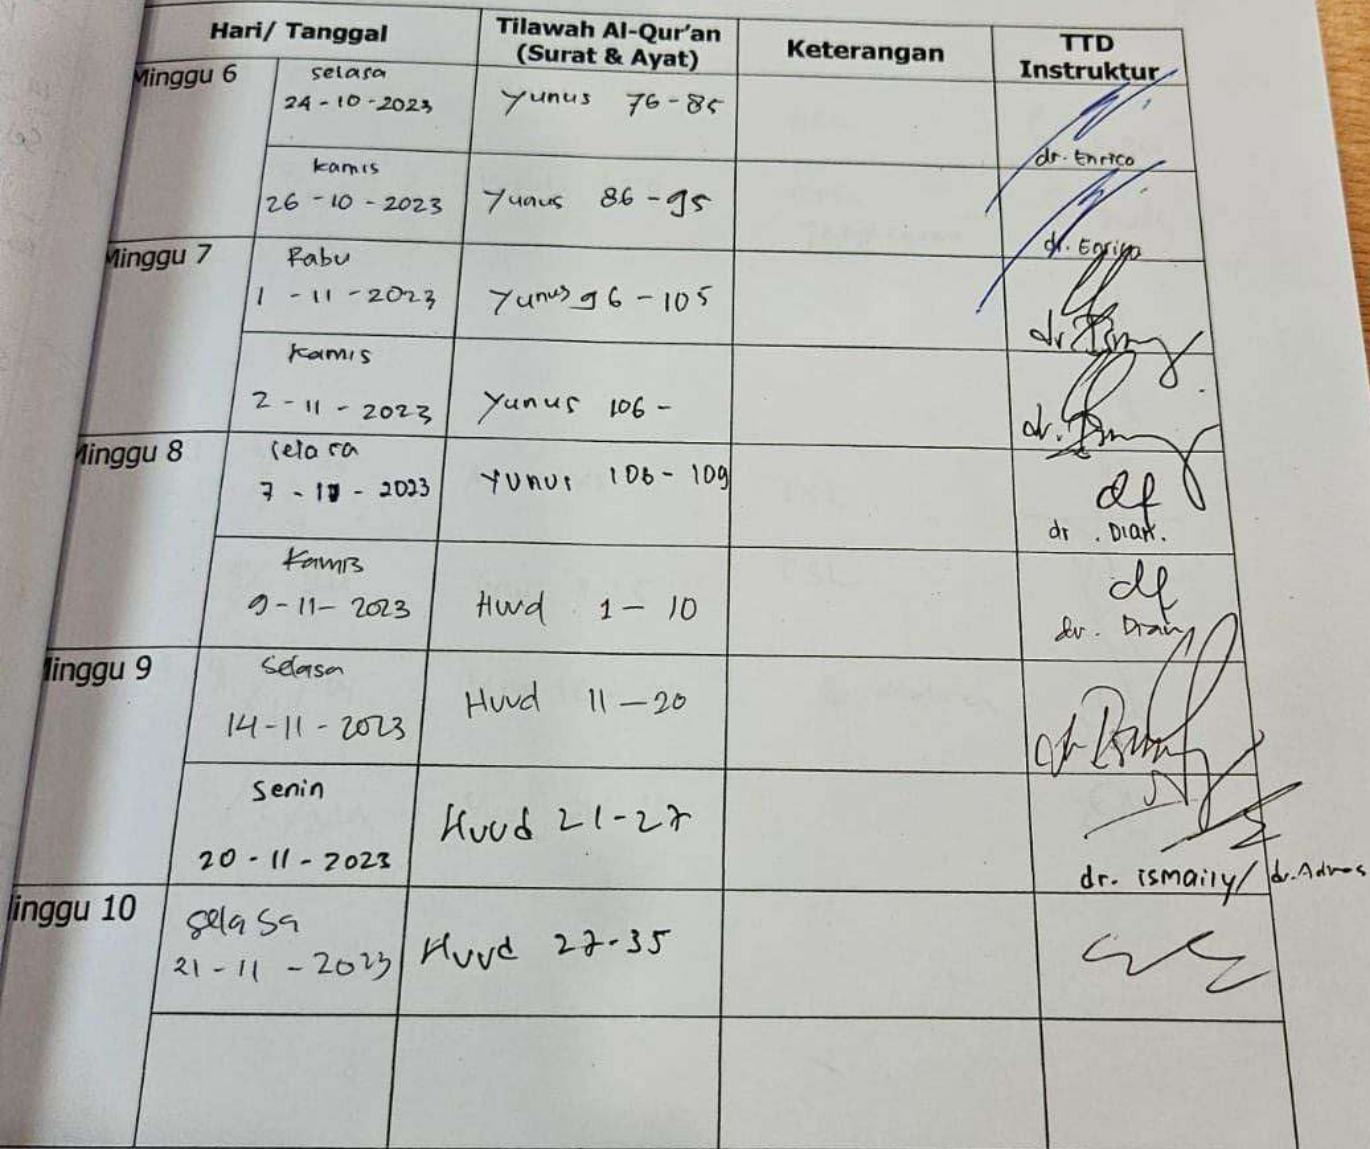 Hari/ Tanggal
Tilawah Al-Qur'an
(Surat & Ayat)
Keterangan
TTD
Instruktur
Minggu 6
selasa
24-10-2023
Yunus 76-85
dr. Enrico
kamis
26-10-2023
Yunus 86-95
dr.
Minggu 7
Rabu
1-11-2023
Yunus 96-105
dr
Kamis
2-11-2023
Yunus 106-
dr.
Minggu 8
selasa
7-11-2023
Yunus 106-109
dr.
Kamis
9-11-2023
Huud 1-10
dr. Dian
Minggu 9
Selasa
14-11-2023
Huud 11-20
dr
Senin
20-11-2023
Huud 21-27
dr. ismaily/ dr.
Minggu 10
selasa
21-11-2023
Huud 27-35